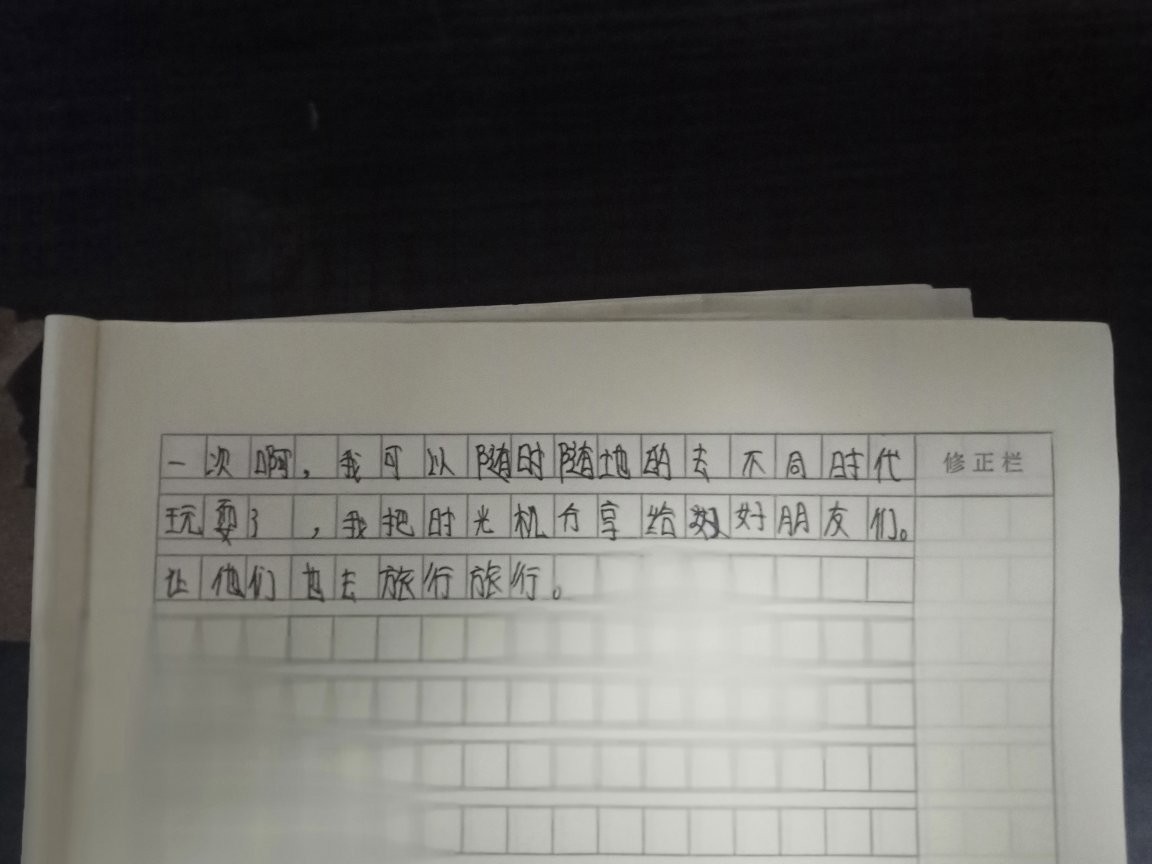 一次啊，我可以随时随地的去不同时代
修正栏
玩耍了，我把时光机分享给好好朋友们。
让他们也去旅行旅行。